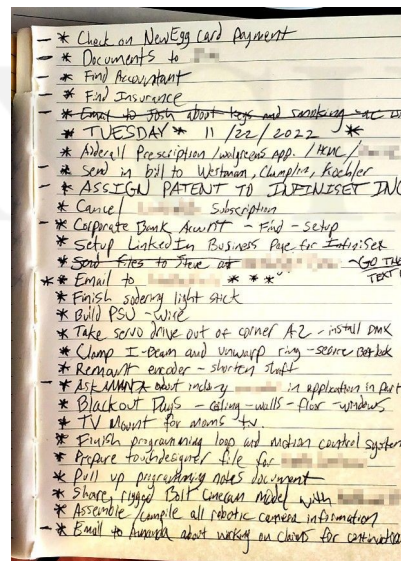 - * Check on NewEgg Card Payment
- * Documents to
- * Find Accountant
- * Find Insurance
- * Email to Josh about keys and smoking
* TUESDAY * 11/22/2022 *
* Aderall Prescription / walgreens App. / HCMC /
- * Send in bill to Westman, Champlin, Koehler
- * ASSIGN PATENT TO INFINISET INC
* Cancel Subscription
* Corporate Bank Account - Find - Setup
* Setup LinkedIn Business Page for Infiniset
* Send files to Steve at - GO TH
TEXT
* * Email to * * *
* Finish soldering light stick
* Build PSU - Wire
* Take servo drive out of corner A2 - install
* Clamp I-Beam and unwarp ring - secure
* Remount encoder - shorten shaft
- * Ask about in application in Part
* Blackout - ceiling - walls - floor - windows
* TV Mount for moms tv.
* Finish programming loop and motion control system
* Prepare touchdesigner file for
* Pull up programming notes document
* Share rigged Bolt Cinecam model with
* Assemble / compile all robotic camera information
- * Email to Amanda about working on claims for continuation